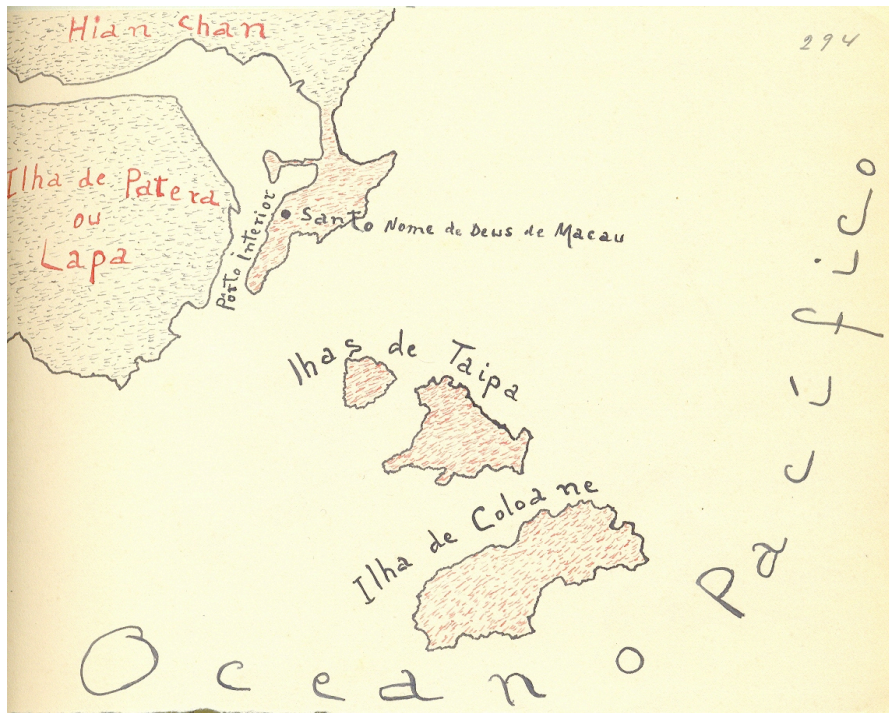 Hian Chan
294
Ilha de Patera
ou
Lapa
Porto Interior
Santo Nome de Deus de Macau
Ilhas de Taipa
Ilha de Coloane
Oceano Pacífico